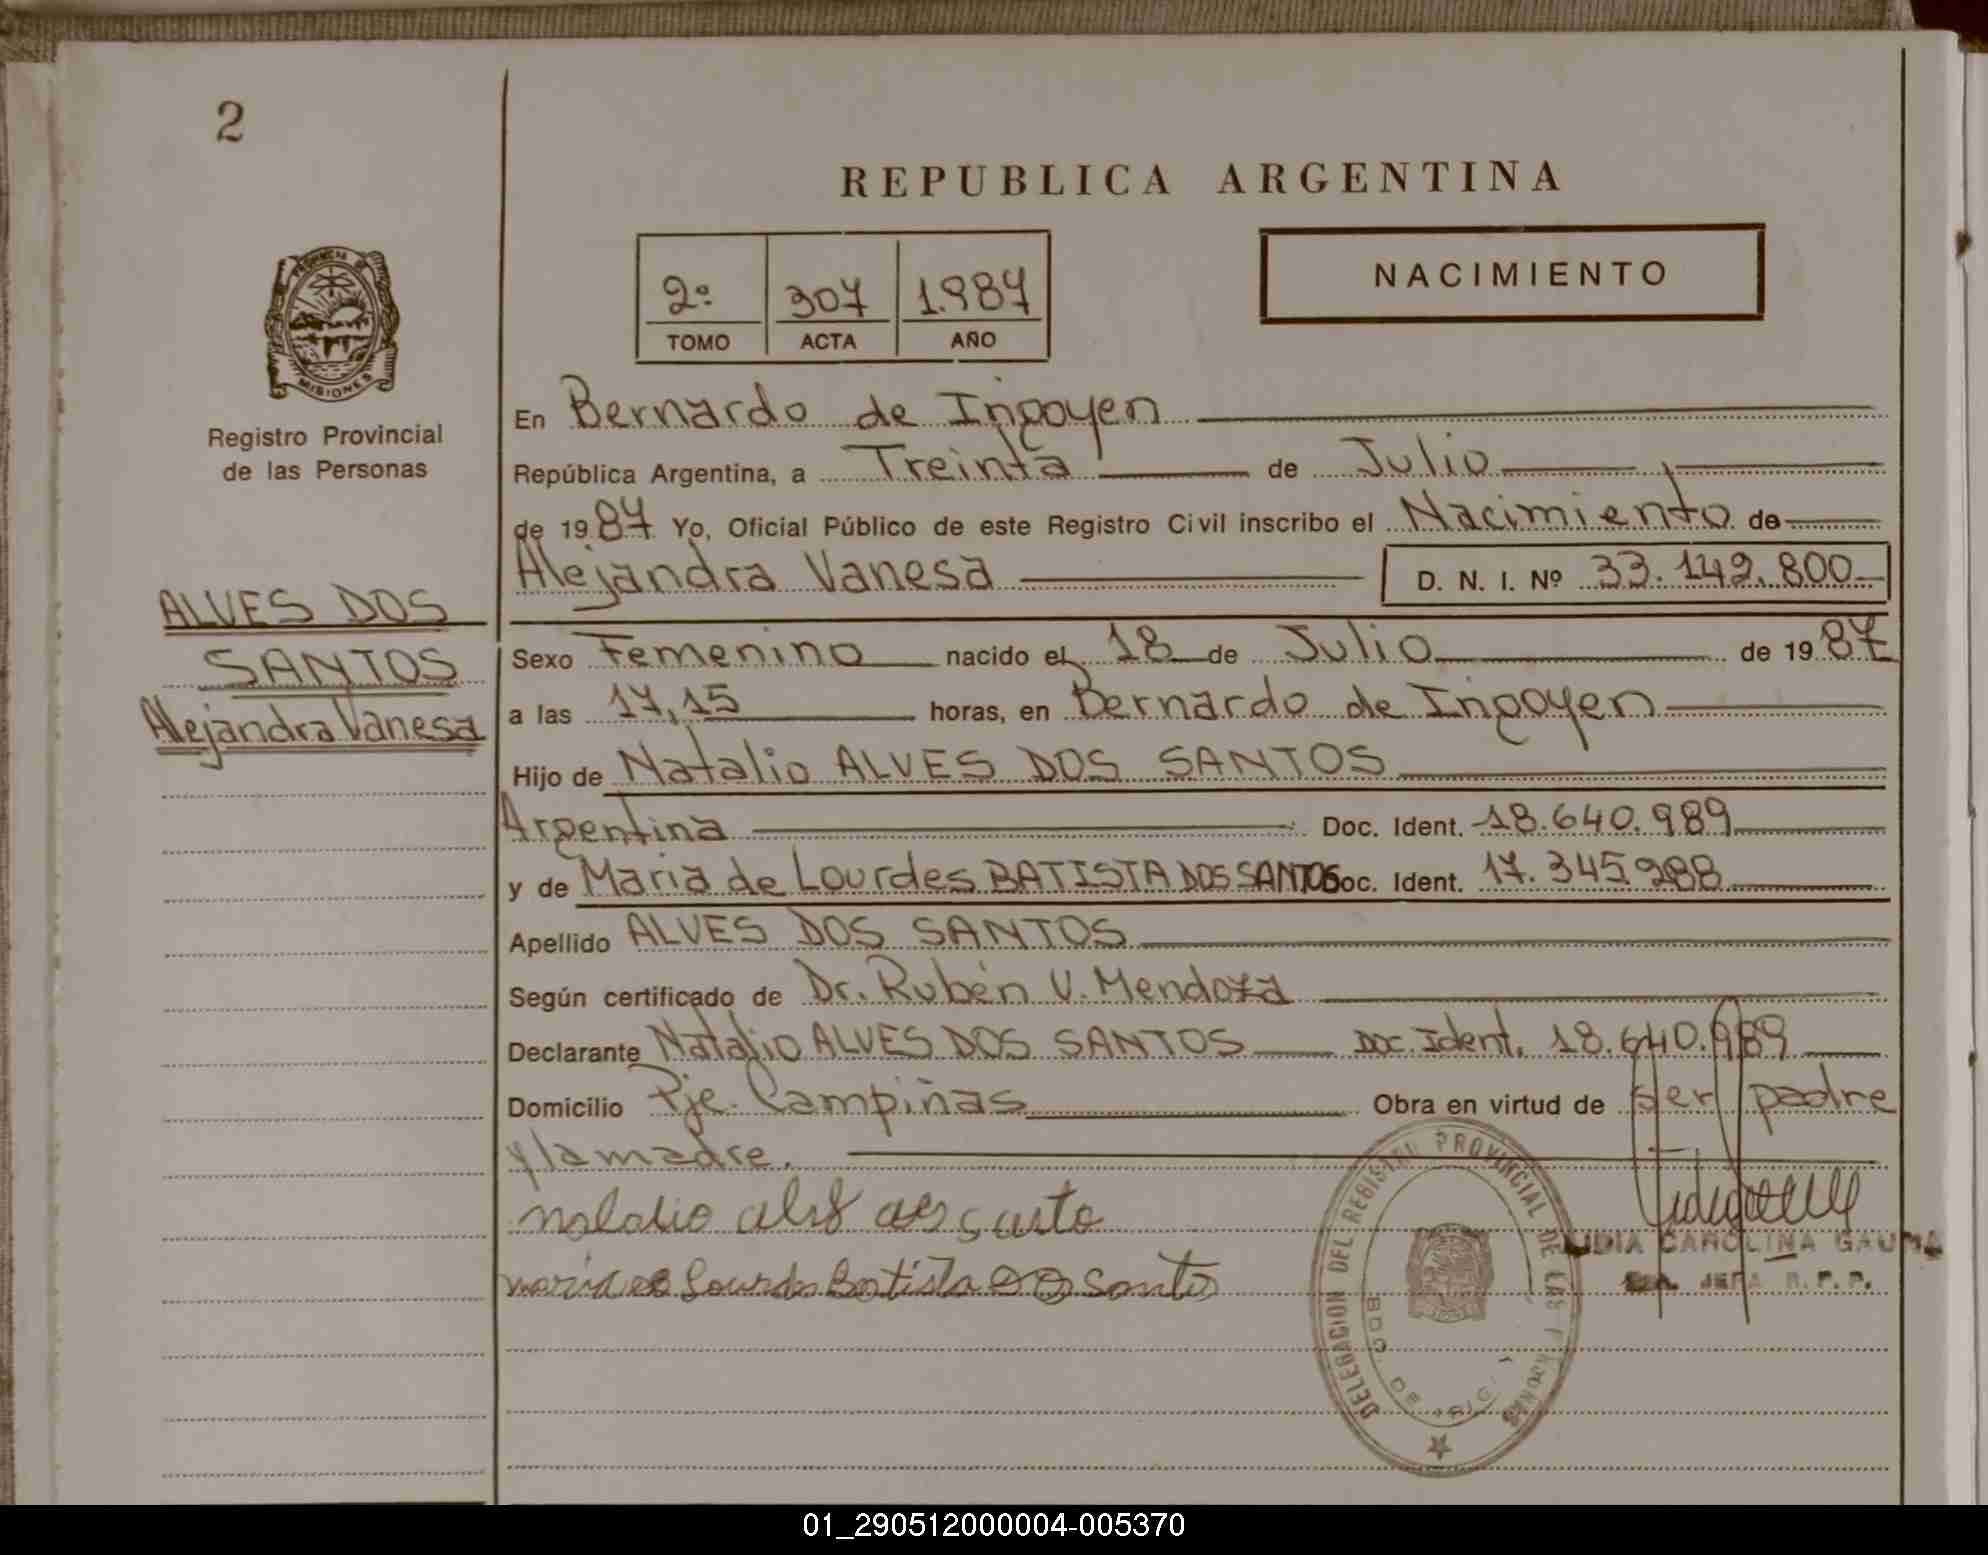 2
REPUBLICA ARGENTINA
2º 307 1.987
TOMO ACTA AÑO
NACIMIENTO
PROVINCIA DE
MISIONES
Registro Provincial
de las Personas
En Bernardo de Irigoyen
República Argentina, a Treinta de Julio
de 1987 Yo, Oficial Público de este Registro Civil inscribo el Nacimiento de
Alejandra Vanesa D. N. I. Nº 33.142.800
ALVES DOS
SANTOS
Alejandra Vanesa
Sexo Femenino nacido el 18 de Julio de 1987
a las 17,15 horas, en Bernardo de Irigoyen
Hijo de Natalio ALVES DOS SANTOS
Argentina Doc. Ident. 18.640.989
y de Maria de Lourdes BATISTA DOS SANTOS Doc. Ident. 17.345288
Apellido ALVES DOS SANTOS
Según certificado de Dr. Rubén V. Mendoza
Declarante Natalio ALVES DOS SANTOS Doc. Ident. 18.640.989
Domicilio Pje. Campiñas Obra en virtud de ser padre
y la madre.
DELEGACION DEL REGISTRO PROVINCIAL DE LAS PERSONAS
BDO. DE IRIG.
LIDIA CAROLINA GAUNA
JEFA R.P.P.
01_290512000004-005370